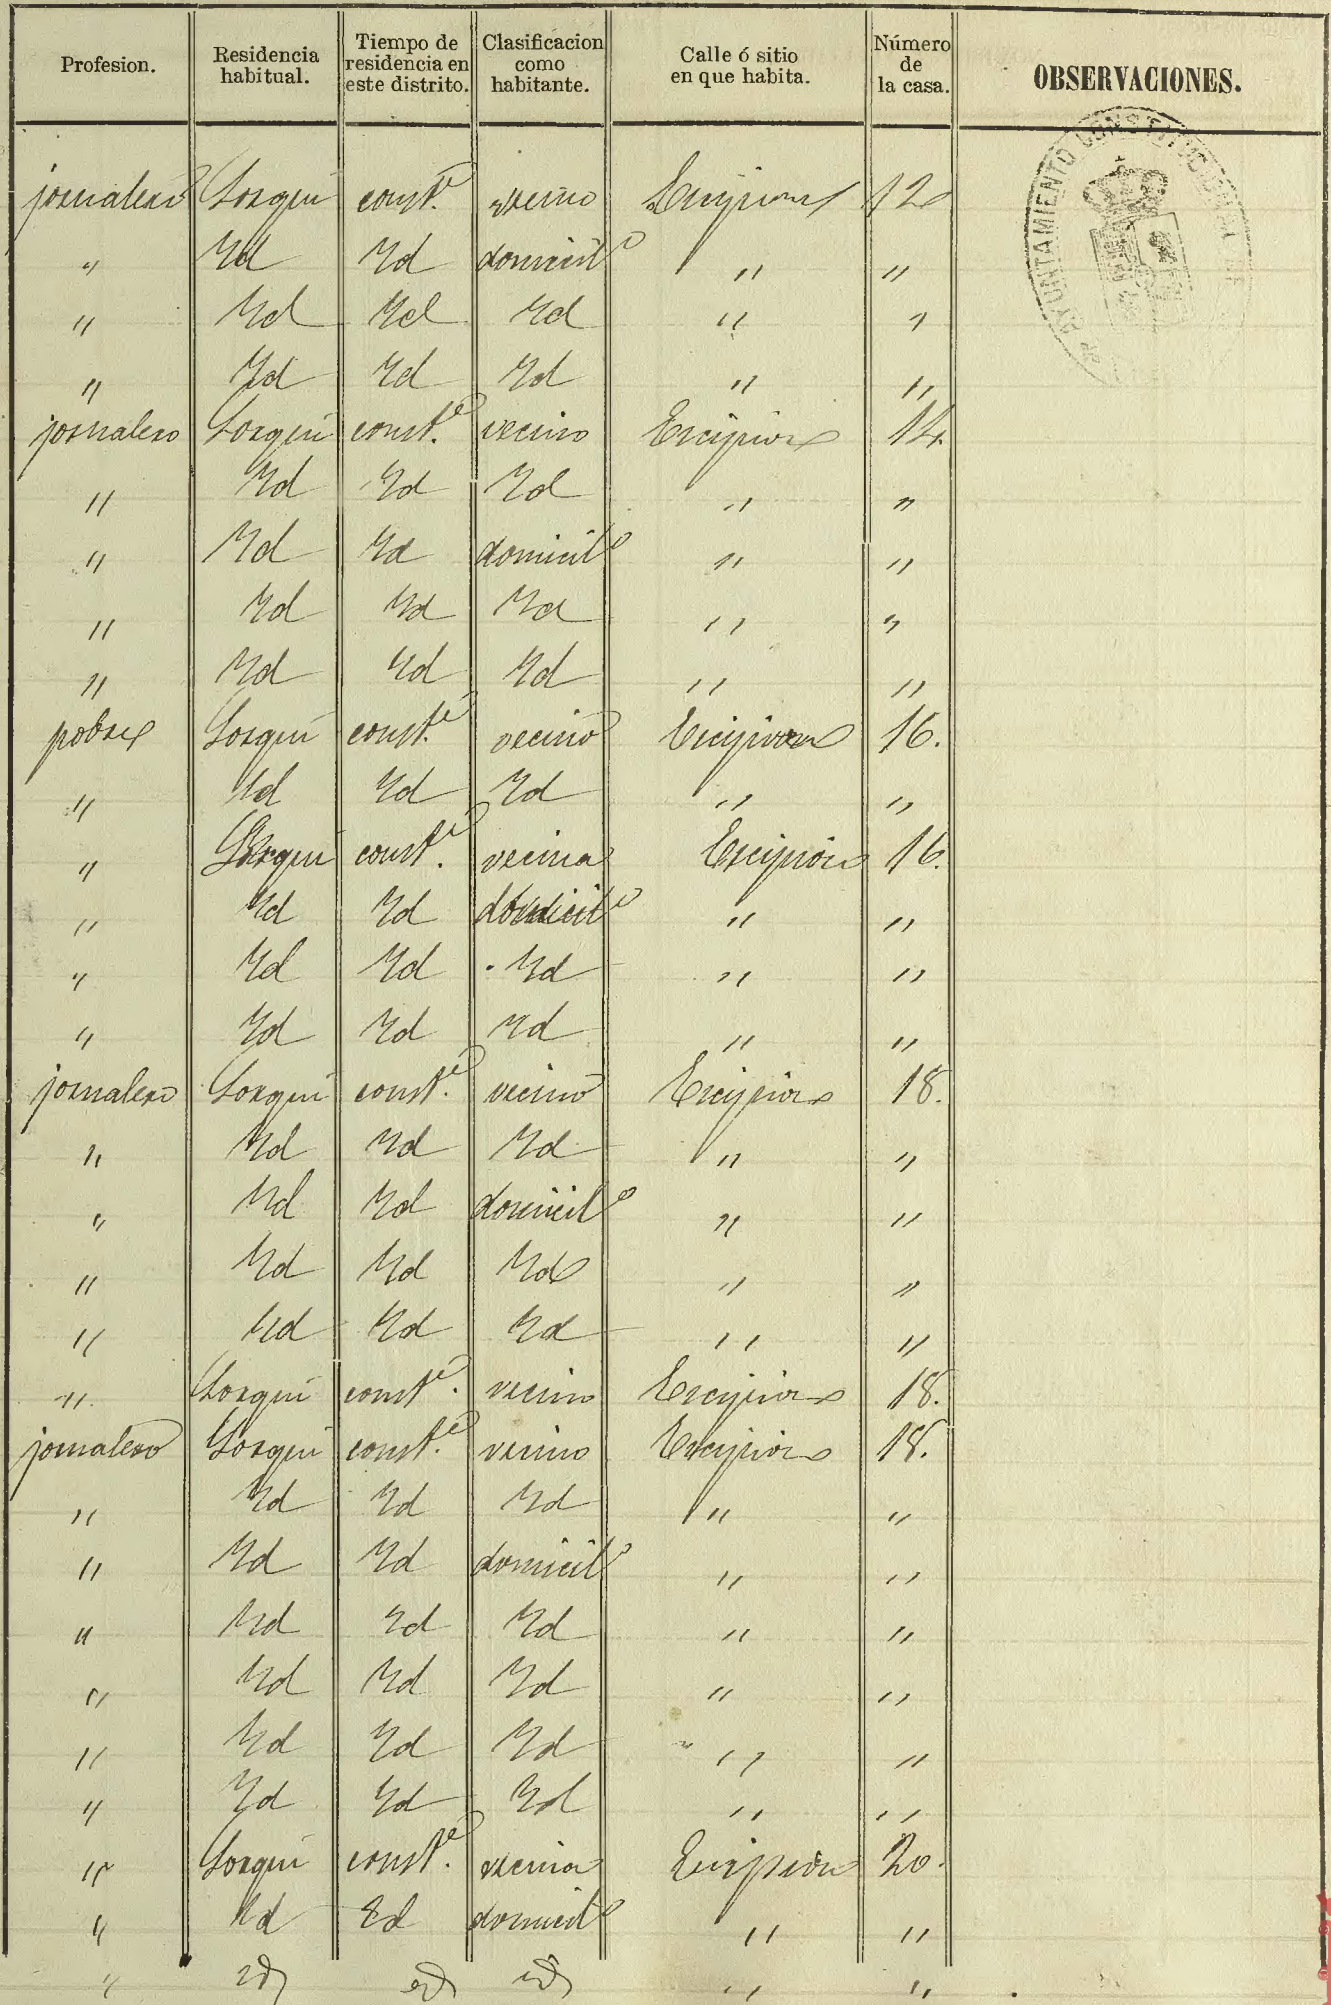 Profesion. Residencia habitual. Tiempo de residencia en este distrito. Clasificacion como habitante. Calle ó sitio en que habita. Número de la casa. OBSERVACIONES.
AYUNTAMIENTO CONSTITUCIONAL DE
jornalero Lorqui const.e vecino Escipion 12
" Yd Yd domicil.o " "
" Yd Yd Yd " "
" Yd Yd Yd " "
jornalero Lorqui const.e vecino Escipion 14.
" Yd Yd Yd " "
" Yd Yd domicil.o " "
" Yd Yd Yd " "
" Yd Yd Yd " "
pobre Lorqui const.e vecino Escipion 16.
" Yd Yd Yd " "
" Lorqui const.e vecina Escipion 16.
" Yd Yd domicil.o " "
" Yd Yd Yd " "
" Yd Yd Yd " "
jornalero Lorqui const.e vecino Escipion 18.
" Yd Yd Yd " "
" Yd Yd domicil.o " "
" Yd Yd Yd " "
" Yd Yd Yd " "
" Lorqui const.e vecino Escipion 18.
jornalero Lorqui const.e vecino Escipion 18.
" Yd Yd Yd " "
" Yd Yd domicil.o " "
" Yd Yd Yd " "
" Yd Yd Yd " "
" Yd Yd Yd " "
" Yd Yd Yd " "
" Lorqui const.e vecina Escipion 20.
" Yd Yd domicil.o " "
" id id id " "